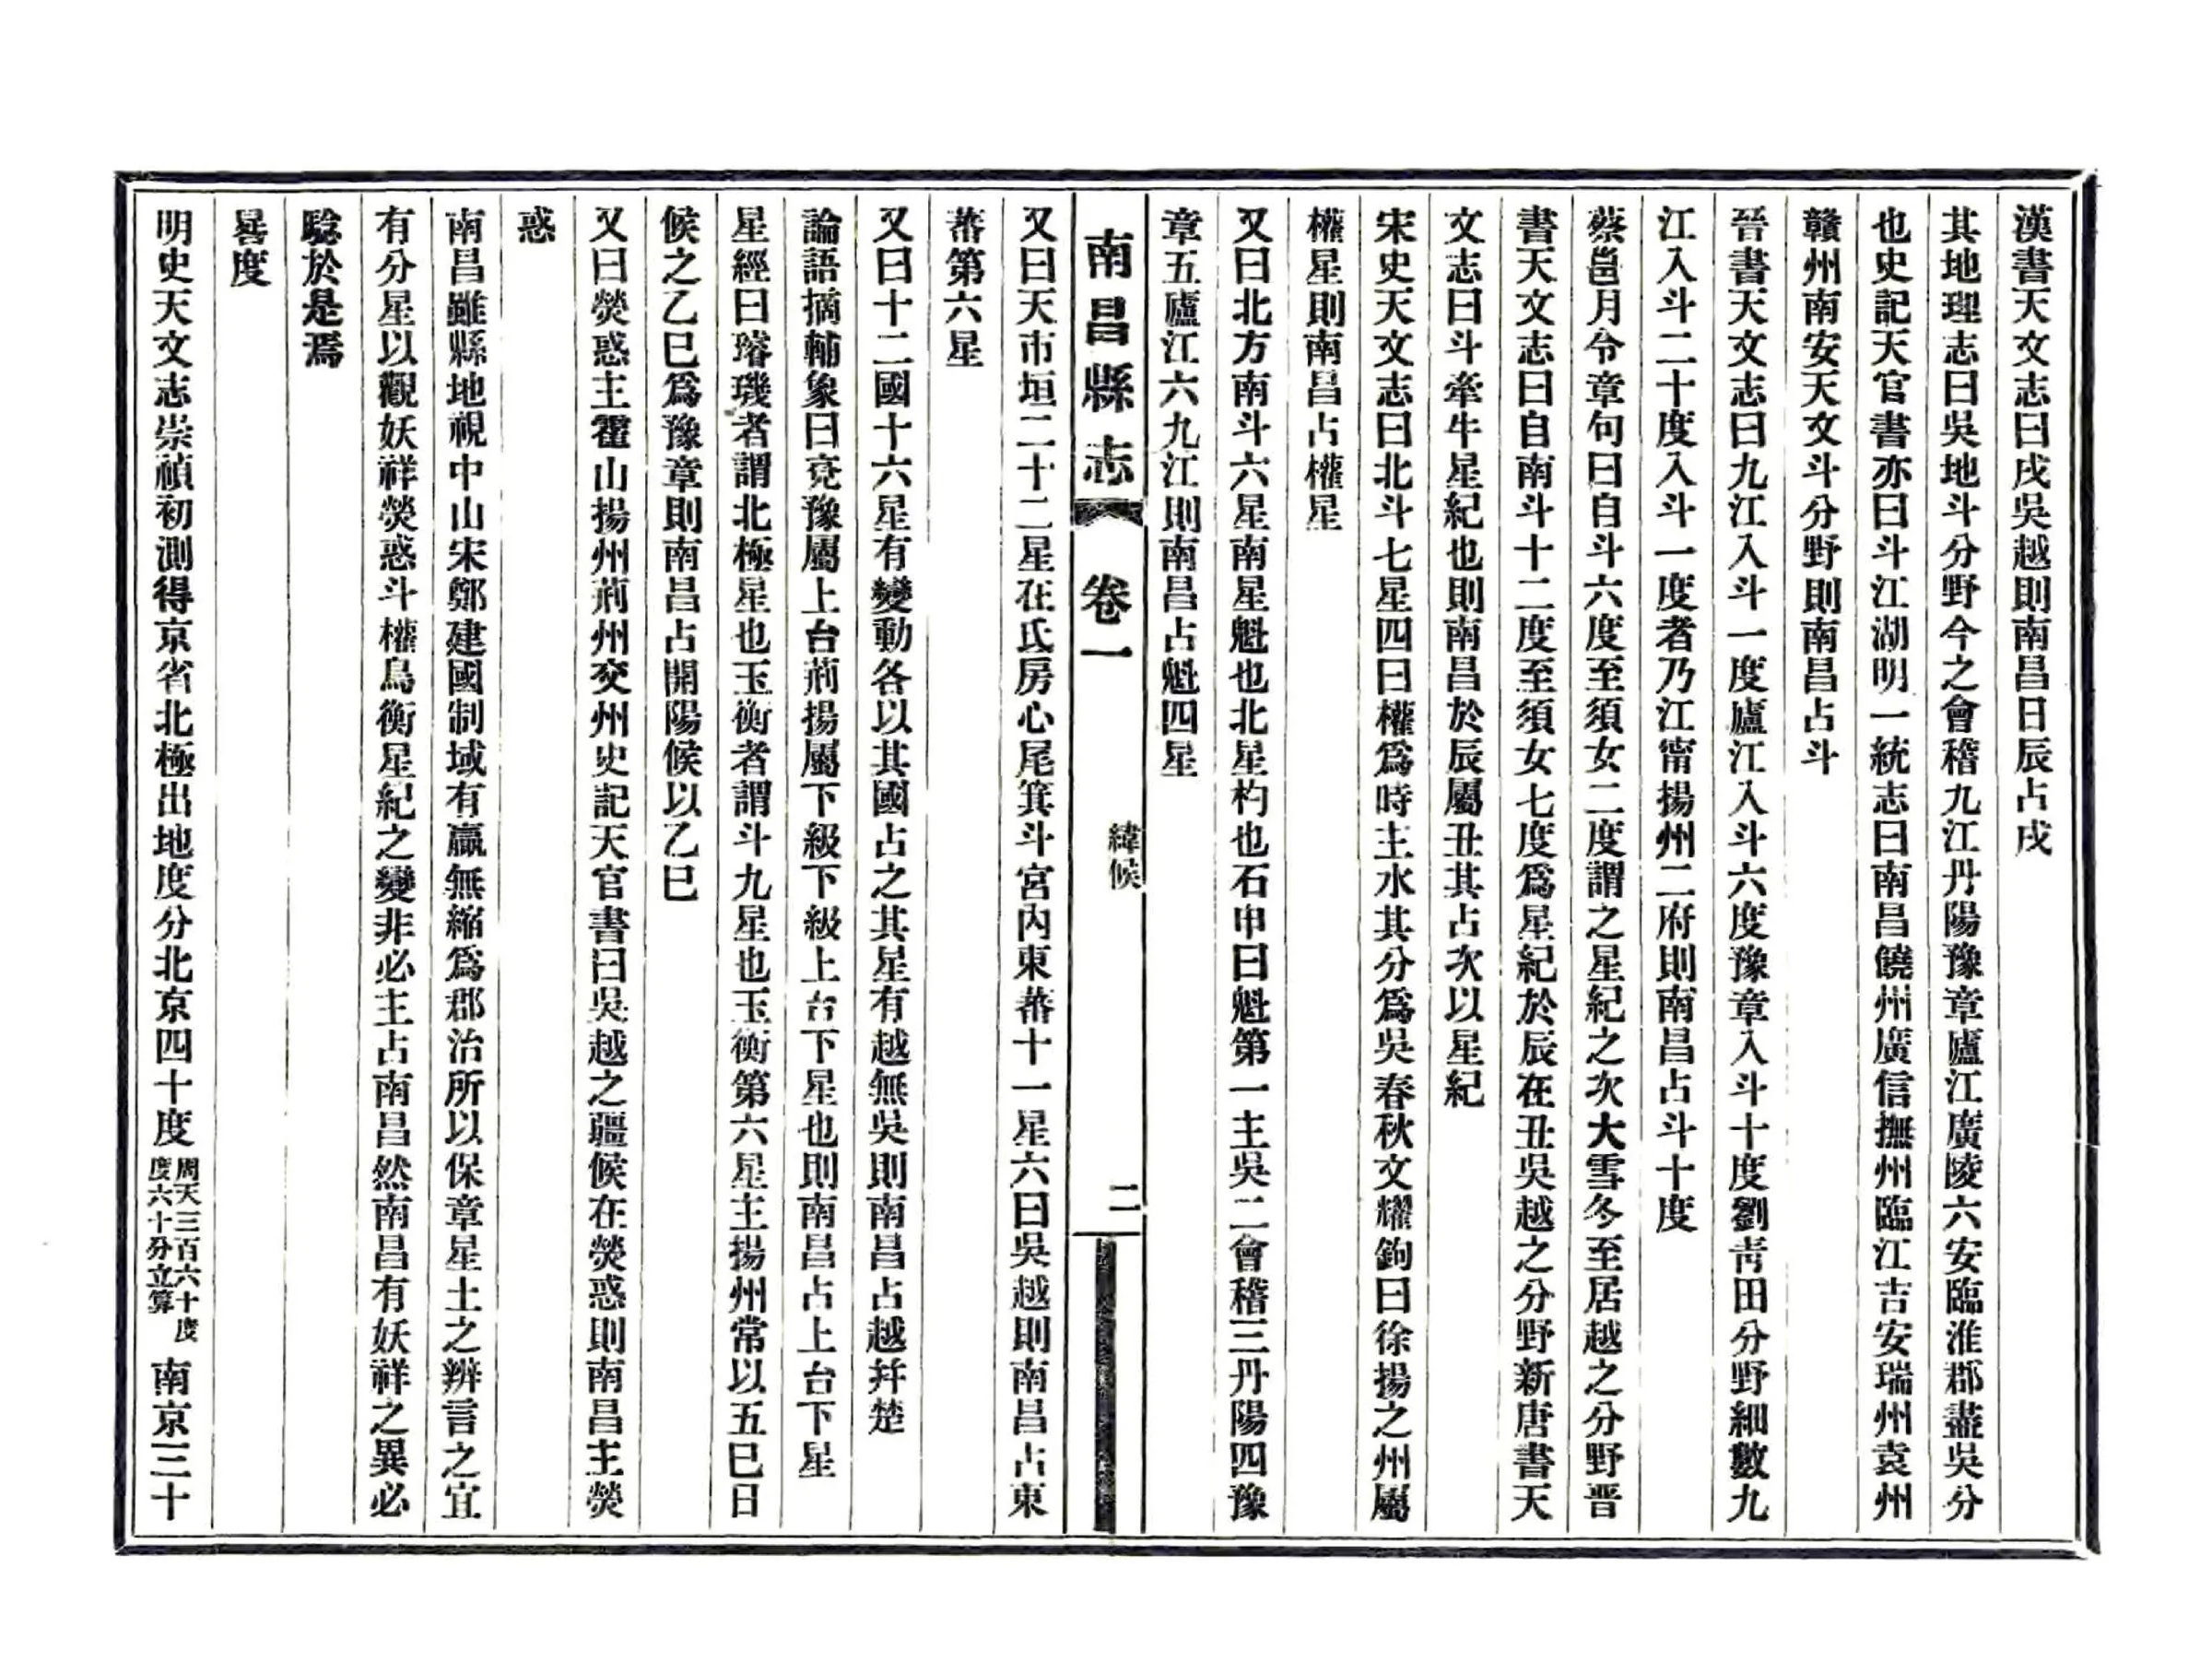 漢書天文志曰戌吳越則南昌日辰占戌
其地理志曰吳地斗分野今之會稽九江丹陽豫章廬江廣陵六安臨淮郡盡吳分
也史記天官書亦曰斗江湖明一統志曰南昌饒州廣信撫州臨江吉安瑞州袁州
贛州南安天文斗分野則南昌占斗
晉書天文志曰九江入斗一度廬江入斗六度豫章入斗十度劉靑田分野細數九
江入斗二十度入斗一度者乃江甯揚州二府則南昌占斗十度
蔡邕月令章句曰自斗六度至須女二度謂之星紀之次大雪冬至居越之分野晋
書天文志曰自南斗十二度至須女七度爲星紀於辰在丑吳越之分野新唐書天
文志曰斗牽牛星紀也則南昌於辰屬丑其占次以星紀
宋史天文志曰北斗七星四曰權爲時主水其分爲吳春秋文耀鉤曰徐揚之州屬
權星則南昌占權星
又曰北方南斗六星南星魁也北星杓也石申曰魁第一主吳二會稽三丹陽四豫
章五廬江六九江則南昌占魁四星
南昌縣志 卷一 緯候 二
又曰天市垣二十二星在氐房心尾箕斗宮內東蕃十一星六曰吳越則南昌占東
蕃第六星
又曰十二國十六星有變動各以其國占之其星有越無吳則南昌占越幷楚
論語摘輔象曰兗豫屬上台荊揚屬下級下級上台下星也則南昌占上台下星
星經曰璿璣者謂北極星也玉衡者謂斗九星也玉衡第六星主揚州常以五巳日
候之乙巳爲豫章則南昌占開陽候以乙巳
又曰熒惑主霍山揚州荊州交州史記天官書曰吳越之疆候在熒惑則南昌主熒
惑
南昌雖縣地視中山宋鄭建國制域有贏無縮爲郡治所以保章星土之辨言之宜
有分星以觀妖祥熒惑斗權鳥衡星紀之變非必主占南昌然南昌有妖祥之異必
騐於是焉
晷度
明史天文志崇禎初測得京省北極出地度分北京四十度周天三百六十度度六十分立算南京三十